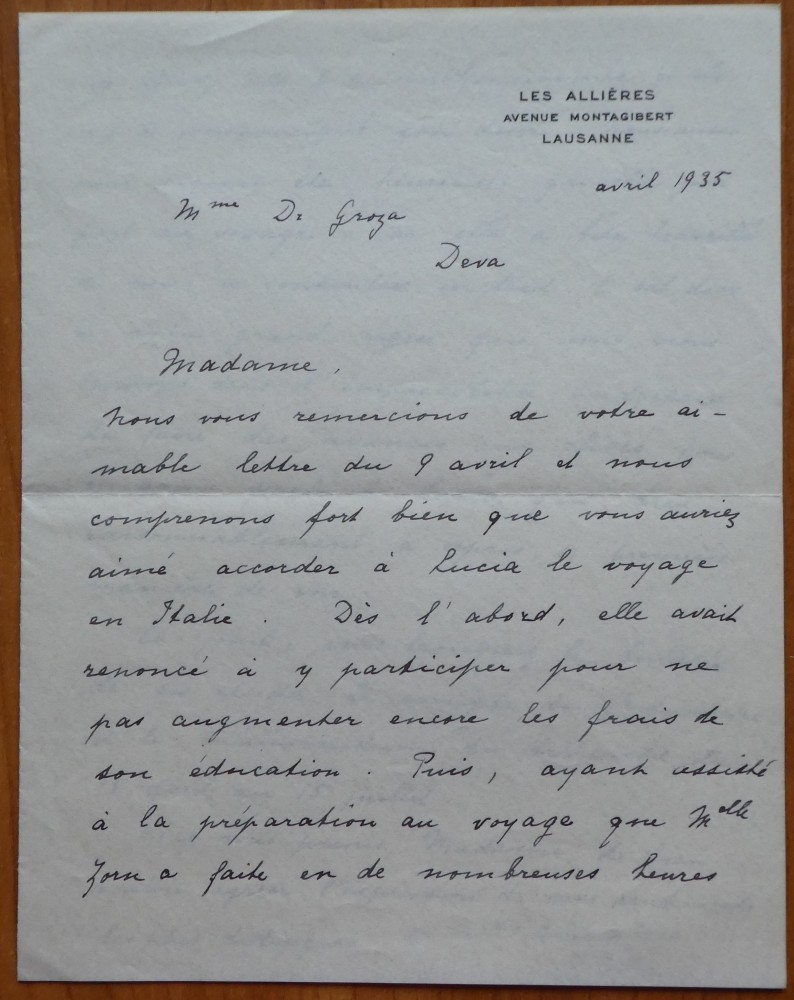 LES ALLIÈRES
AVENUE MONTAGIBERT
LAUSANNE
avril 1935
Mme Dr Groza
Deva
Madame,
Nous vous remercions de votre ai-
mable lettre du 9 avril et nous
comprenons fort bien que vous auriez
aimé accorder à Lucia le voyage
en Italie. Dès l'abord, elle avait
renoncé à y participer pour ne
pas augmenter encore les frais de
son éducation. Puis, ayant assisté
à la préparation au voyage que Melle
Zorn a faite en de nombreuses heures